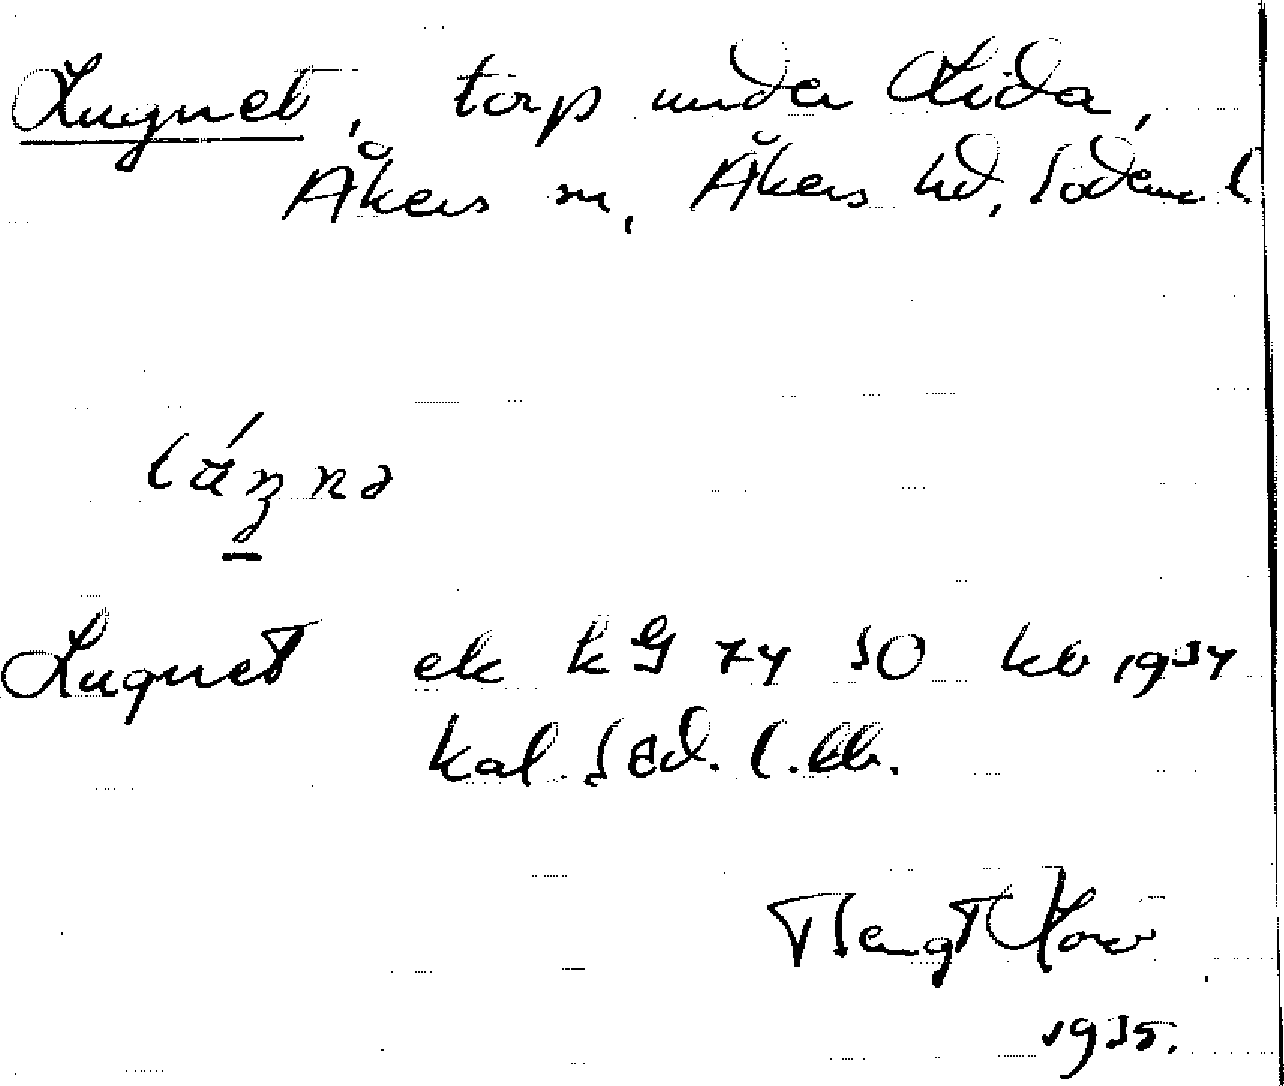 Lugnet, torp under Lida,
Åkers sn, Åkers hd, Söderm l
Lugnet ek kg 74 SO kb 1934
kal. Söd. l. bb.
Bengt
1935.